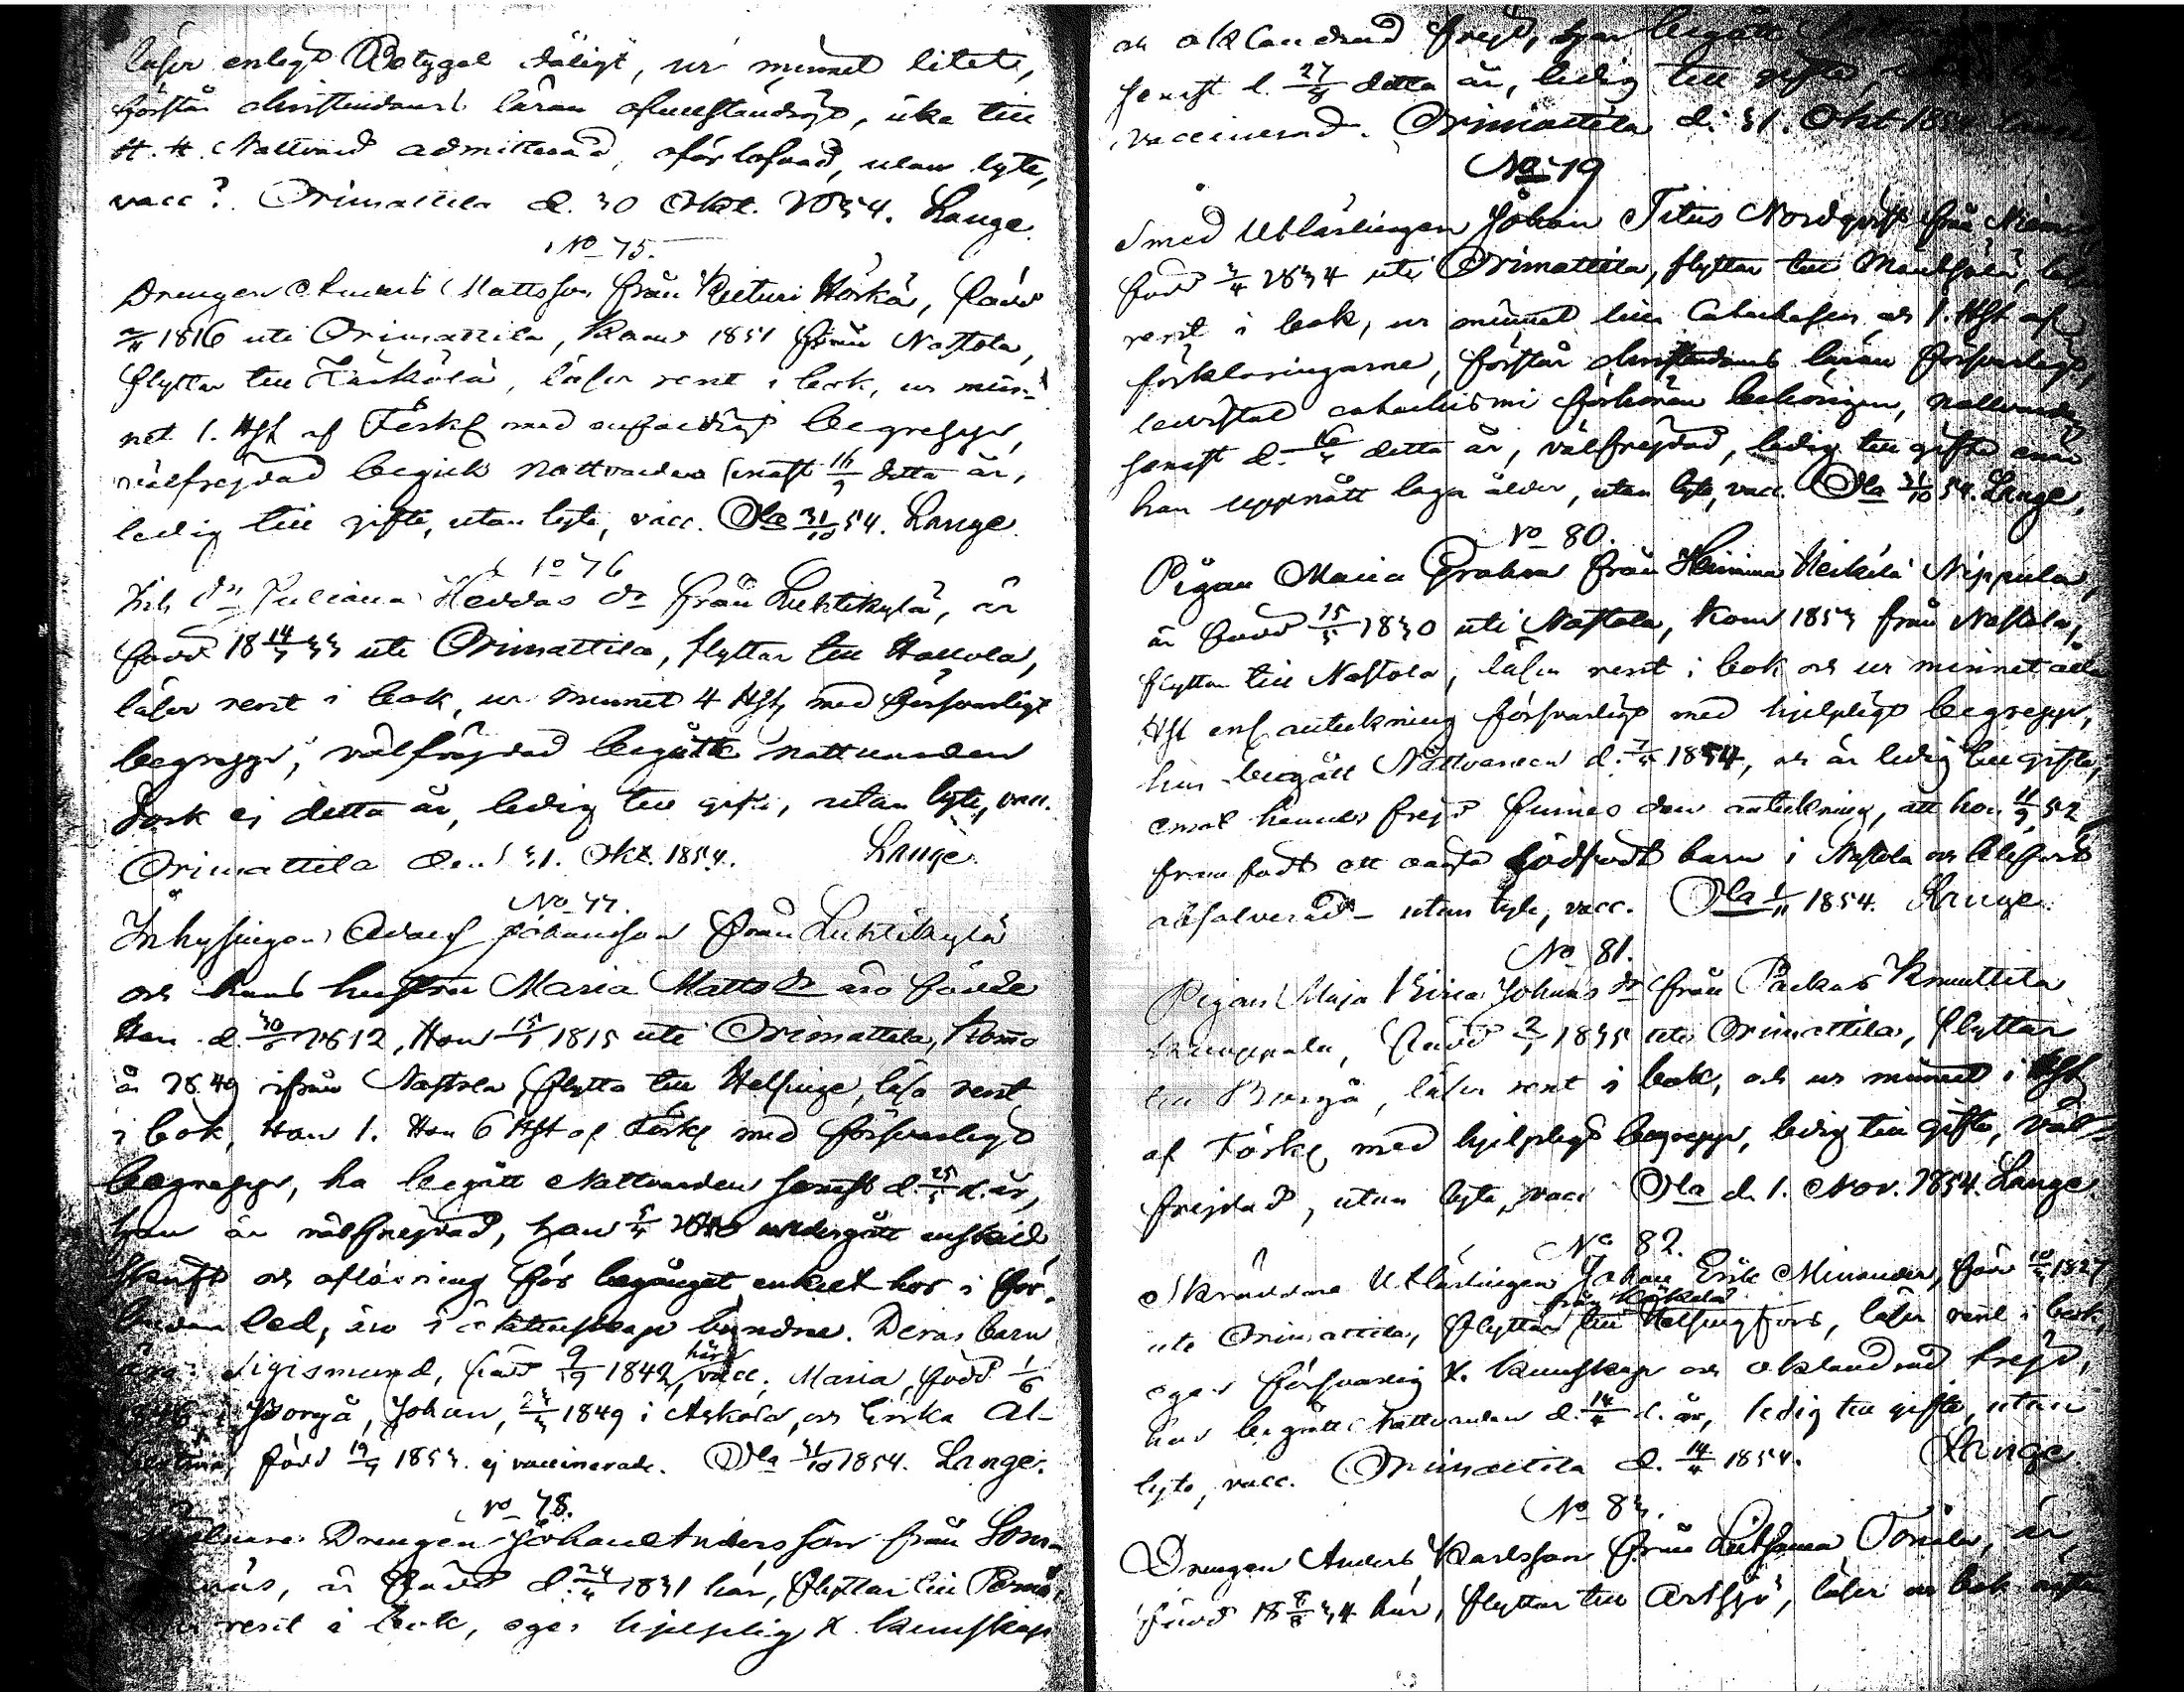 läser enligt Betyget dåligt, ur minnet litet,
förstår christendoms läran ofullständigt, icke till
H. H. Nattvard admitterad, oförlofvad, utan lyte,
vacc? Orimattila d. 30 Okt. 1854. Lange.
No 75.
Drengen Anders Mattsson från Keituri Hörkä, född
1816 uti Orimattila, kom 1851 från Nastola,
flyttar till Kärkölä, läser rent i bok, ur min-
net 1. Hst af Förkl med enfaldigt begrepp,
välfrejdad begick nattvarden senast 16/7 detta år,
ledig till gifte, utan lyte, vacc. Ola 31/10 54. Lange.
No 76
Inh dn Juliana Heddas dr från Luhtikylä, är
född 18 14/7 33 uti Orimattila, flyttar till Hollola,
läser rent i bok, ur minnet 4 Hst, med försvarligt
begrepp, välfrejdad begått nattvarden
dock ej detta år, ledig till gifte, utan lyte, vacc.
Orimattila den 31. Okt. 1854. Lange.
No 77.
Inhysingen Adolf Johansson från Luhtikylä
och hans hustru Maria Matts dr äro födde
Han d. 30/6 1812, Hon 15/1 1815 uti Orimattila, komo
år 1849 ifrån Nastola, flytta till Helsinge, läsa rent
i bok, Han 1. Hon 6 Hst af Förkl med försvarligt
begrepp, ha begått Nattvarden senast d. 25/5 d. år,
hon är välfrejdad, han 5/4 1840 undergått enskild
skrift och aflösning för begånget enkelt hor i för-
bunden led, äro i äktenskap bundne. Deras barn
äro: Sigismund, född 9/9 1842, här vacc, Maria, född 1/6
1846 i Borgå, Johan, 23/3 1849 i Askola, och Erika Al-
född 19/9 1853. ej vaccinerade. Ola 31/10 1854. Lange.
No 78.
Drengen Johan Andersson från
är född d. 24/4 1831 här, flyttar till Pernå,
rent i bok, eger hjelplig X. kunskap
och oklandrad frejd, har begått
senast d. 27/8 detta år, ledig till gifte,
vaccinerad. Orimattila d. 31. Okt 1854 Lange
No 79
Smed Utlärlingen Johan Titus Nordqvist från
född 3/4 1834 uti Orimattila, flyttar till Mäntsälä,
rent i bok, ur minnet lilla Catechesen och 1. Hst af
förklaringarne, förstår christendoms läran försvarligt,
bevistat catechismi förhören behörigen, nattvarden
senast d. 16/4 detta år, välfrejdad, ledig till gifte
han uppnått laga ålder, utan lyte, vacc. Ola 31/10 54. Lange.
No 80.
Pigan Maria Graham från Heinämaa Heikkilä Nippula,
är född 15/5 1830 uti Nastola, kom 1853 från Nastola,
flyttar till Nastola, läser rent i bok och ur minnet alla
Hst enl anteckning försvarligt med hjelpligt begrepp,
hon begått Nattvarden d. 7/5 1854, och är ledig till gifte,
emot hennes frejd finnes den anteckning, att hon 11/9 52
framfödt ett oägta dödfödt barn i Nastola och blifvit
absolverad – utan lyte, vacc. Ola 1/11 1854. Lange.
No 81.
Pigan Maja Johans dr från Packas Knuttila
född 2/1 1835 uti Orimattila, flyttar
till Borgå, läser rent i bok, och ur minnet 1 Hst
af Förkl med hjelpligt begrepp, ledig till gifte, väl-
frejdad, utan lyte, vacc Ola d. 1. Nov. 1854. Lange
No 82.
Skräddare Utlärlingen Johan Erik Minander, född 10/3 1827
uti Orimattila, flyttar från till Helsingfors, läser rent i bok,
eger försvarlig X. kunskap och oklandrad frejd,
har begått nattvarden d. 14/4 d. år, ledig till gifte, utan
lyte, vacc. Orimattila d. 14/4 1854. Lange
No 83.
Drengen Anders Karlsson från Tönölä, är
född 18 8/8 34 här, flyttar till Artsjö, läser i bok